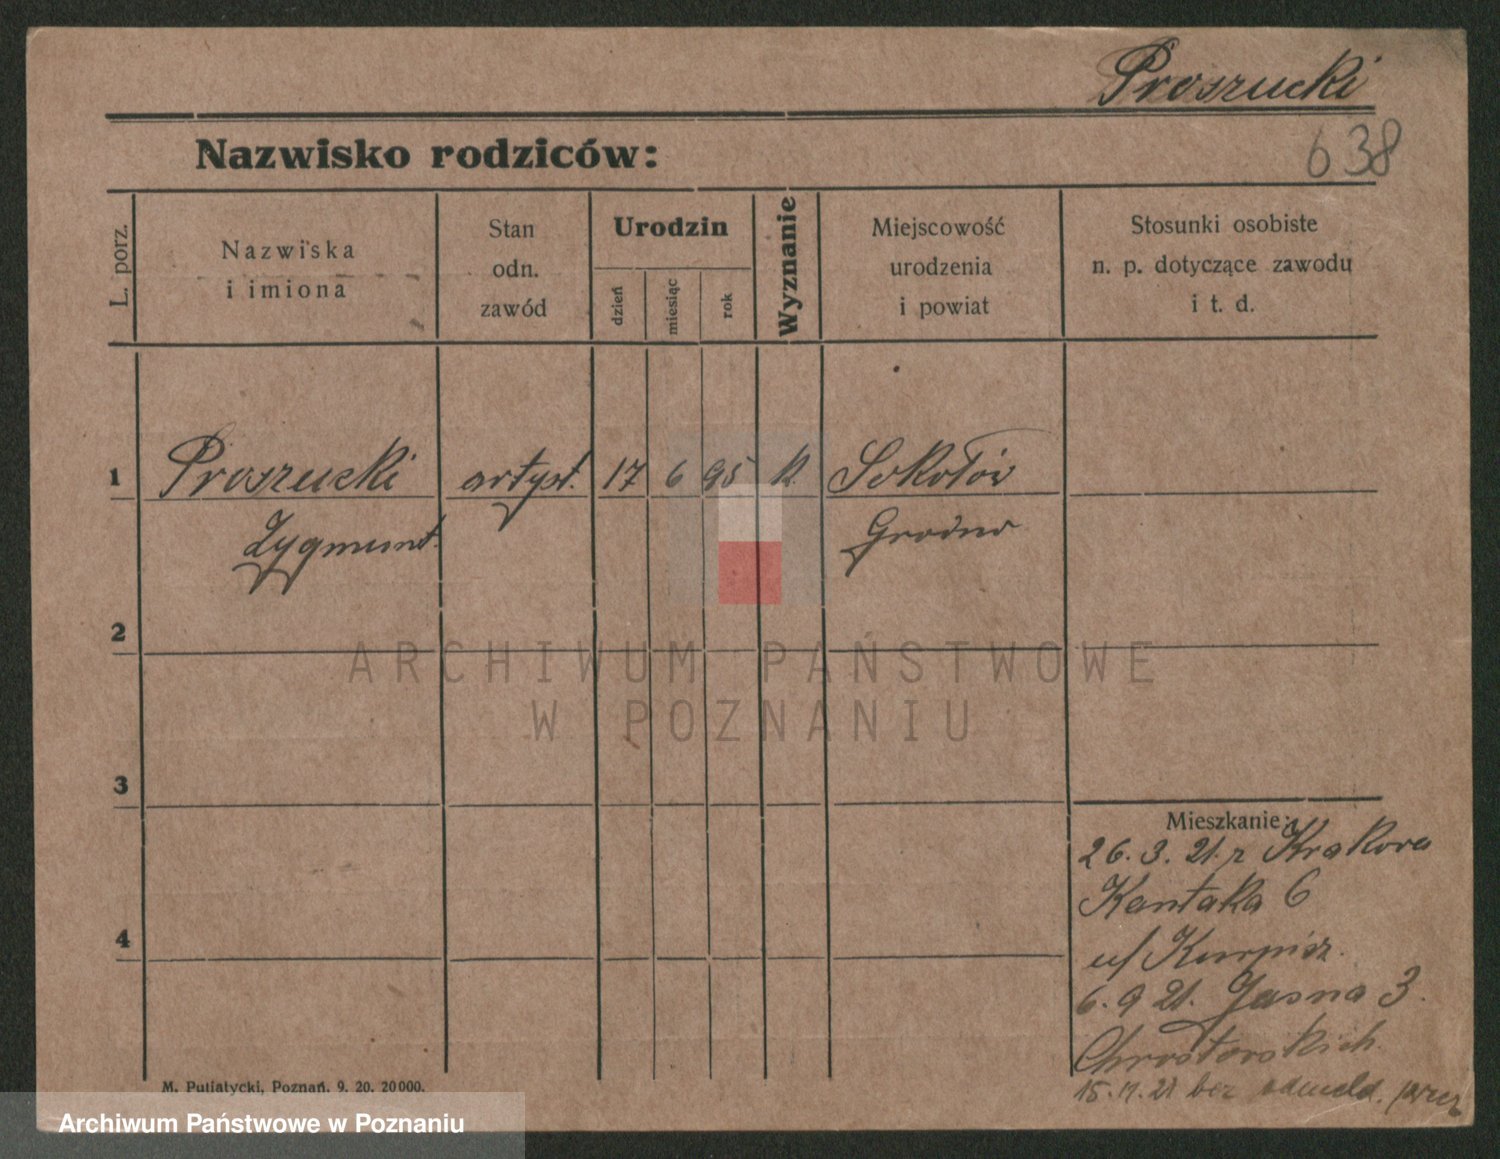 Proszucki
638
Nazwisko rodziców:
L. porz.
Nazwiska
i imiona
Stan
odn.
zawód
Urodzin
dzień
miesiąc
rok
Wyznanie
Miejscowość
urodzenia
i powiat
Stosunki osobiste
n. p. dotyczące zawodu
i t. d.
1 Proszucki artyst. 17 6 95 k. Sokołów
Zygmunt. Grodno
2
ARCHIWUM PAŃSTWOWE
W POZNANIU
3
Mieszkanie:
26. 3. 21. z Krakowa
Kantaka 6
u/ Kurpisz.
4
6. 9 21. Jasna 3.
M. Putiatycki, Poznań. 9. 20. 20000.
bez odmeld.
Archiwum Państwowe w Poznaniu